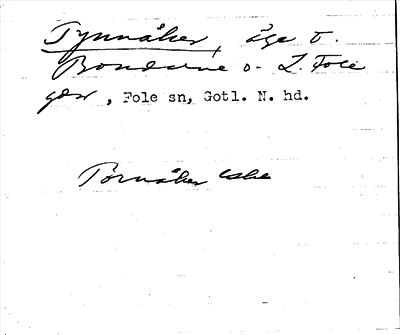 Tynnåker, äga t.
Bondarve o. L. Fole
gdr, Fole sn, Gotl. N. hd.
Tornåker